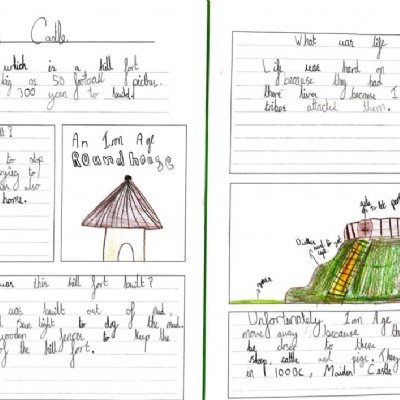 Castle
which is a hill fort
big as 50 football pitches.
300 year to build.
?
to stop
trying to
also
home.
An Iron Age
Roundhouse
was this hill fort built?
was built out of mud,
light to dig the mud.
wooden fences to keep the
of the hill fort.
What was life
Life was hard on
because they had
there lives because I
tribes attacted them.
gate
to let peo
Ditches
to get
grass
Unfortunately, Iron Age
moved away because th
be close to these
sheep, cattle and pigs. They
in 100BC, Maiden Castle